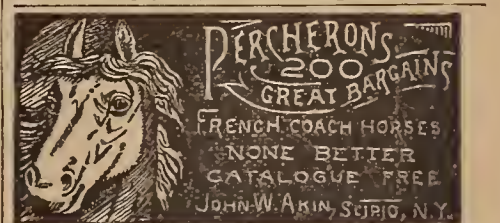 PERCHERONS
200
GREAT BARGAINS
FRENCH COACH HORSES
NONE BETTER
CATALOGUE FREE
JOHN W. AKIN, SCIPIO, N.Y.